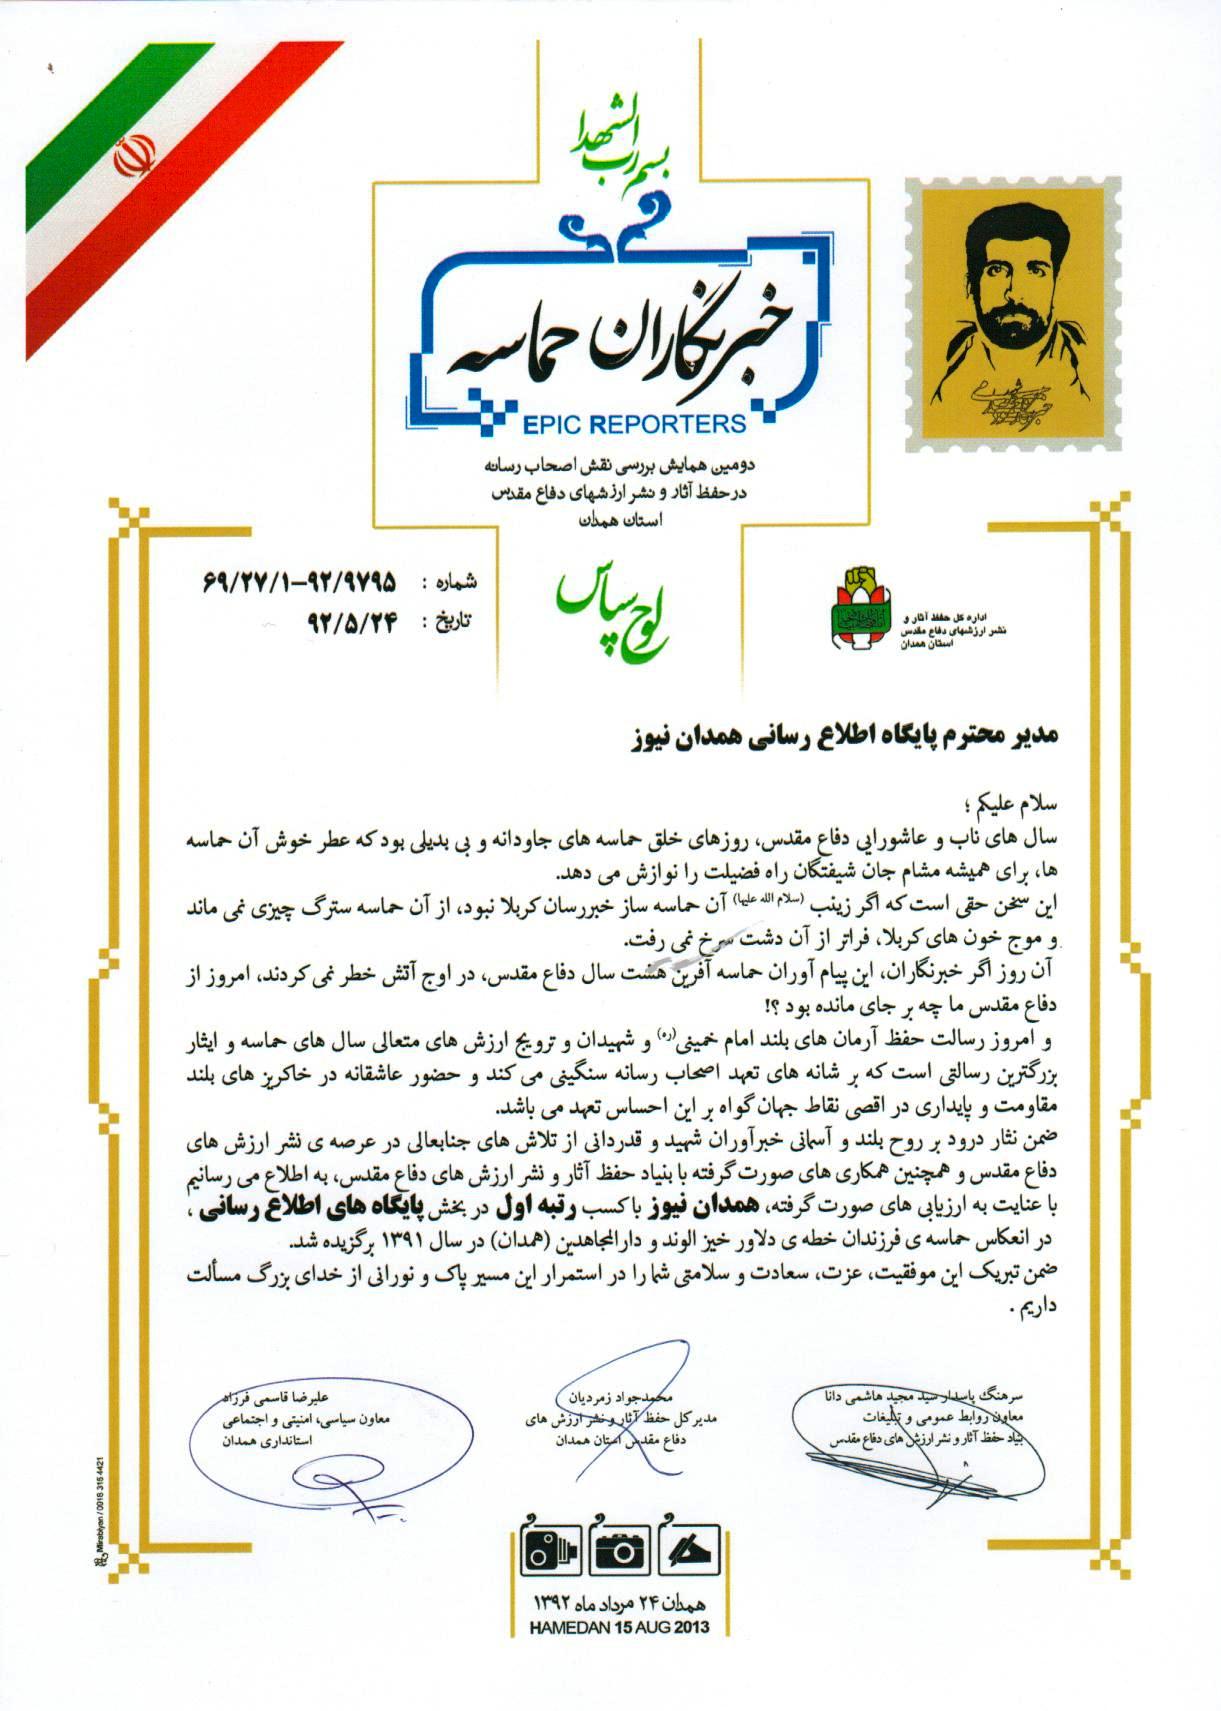 بسم رب الشهدا
خبرنگاران حماسه
EPIC REPORTERS
دومین همایش بررسی نقش اصحاب رسانه
در حفظ آثار و نشر ارزشهای دفاع مقدس
استان همدان
لوح سپاس
شماره : ۶۹/۲۷/۱-۹۲/۹۷۹۵
تاریخ : ۹۲/۵/۲۴
اداره کل حفظ آثار و
نشر ارزشهای دفاع مقدس
استان همدان
مدیر محترم پایگاه اطلاع رسانی همدان نیوز
سلام علیکم ؛
سال های ناب و عاشورایی دفاع مقدس، روزهای خلق حماسه های جاودانه و بی بدیلی بود که عطر خوش آن حماسه
ها، برای همیشه مشام جان شیفتگان راه فضیلت را نوازش می دهد.
این سخن حقی است که اگر زینب (سلام الله علیها) آن حماسه ساز خبررسان کربلا نبود، از آن حماسه سترگ چیزی نمی ماند
و موج خون های کربلا، فراتر از آن دشت سرخ نمی رفت.
آن روز اگر خبرنگاران، این پیام آوران حماسه آفرین هشت سال دفاع مقدس، در اوج آتش خطر نمی کردند، امروز از
دفاع مقدس ما چه بر جای مانده بود ؟!
و امروز رسالت حفظ آرمان های بلند امام خمینی(ره) و شهیدان و ترویج ارزش های متعالی سال های حماسه و ایثار
بزرگترین رسالتی است که بر شانه های تعهد اصحاب رسانه سنگینی می کند و حضور عاشقانه در خاکریز های بلند
مقاومت و پایداری در اقصی نقاط جهان گواه بر این احساس تعهد می باشد.
ضمن نثار درود بر روح بلند و آسمانی خبرآوران شهید و قدردانی از تلاش های جنابعالی در عرصه ی نشر ارزش های
دفاع مقدس و همچنین همکاری های صورت گرفته با بنیاد حفظ آثار و نشر ارزش های دفاع مقدس، به اطلاع می رسانیم
با عنایت به ارزیابی های صورت گرفته، همدان نیوز با کسب رتبه اول در بخش پایگاه های اطلاع رسانی ،
در انعکاس حماسه ی فرزندان خطه ی دلاور خیز الوند و دارالمجاهدین (همدان) در سال ۱۳۹۱ برگزیده شد.
ضمن تبریک این موفقیت، عزت، سعادت و سلامتی شما را در استمرار این مسیر پاک و نورانی از خدای بزرگ مسألت
داریم .
سرهنگ پاسدار سید مجید هاشمی دانا
معاون روابط عمومی و تبلیغات
بنیاد حفظ آثار و نشر ارزش های دفاع مقدس
محمدجواد زمردیان
مدیر کل حفظ آثار و نشر ارزش های
دفاع مقدس استان همدان
علیرضا قاسمی فرزاد
معاون سیاسی، امنیتی و اجتماعی
استانداری همدان
Mirabiyan / 0918 315 4421
همدان ۲۴ مرداد ماه ۱۳۹۲
HAMEDAN 15 AUG 2013